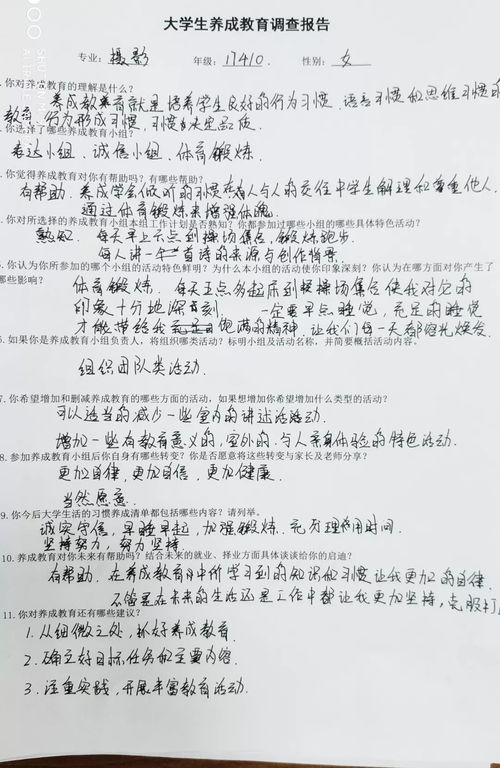 大学生养成教育调查报告
专业: 摄影 年级: 17410. 性别: 女
.你对养成教育的理解是什么?
养成教育就是培养学生良好的行为习惯,语言习惯和思维习惯的
教育,行为形成习惯,习惯决定品质.
.你选择了哪些养成教育小组?
表达小组、诚信小组、体育锻炼.
.你觉得养成教育对你有帮助吗?有哪些帮助?
有帮助. 养成学会倾听的习惯在与人的交往中学生解理和尊重他人.
通过体育锻炼来增强体魄.
.你对所选择的养成教育小组本组工作计划是否熟知?你都参加过哪些小组的哪些具体特色活动?
熟知. 每天早上六点到操场集合,锻炼跑步.
每人讲一首诗的来源与创作背景.
.你认为你所参加的哪个小组的活动特色鲜明?为什么本小组的活动使你印象深刻?你认为在哪方面对你产生了
哪些影响?
体育锻炼. 每天五点多起床到操场集合使我对它的
印象十分地深刻. 一定要早点睡觉,充足的睡觉
才能带给我饱满的精神.让我们每一天都容光焕发.
.如果你是养成教育小组负责人,将组织哪类活动?标明小组及活动名称,并简要概括活动内容。
组织团队类活动.
7.你希望增加和删减养成教育的哪些方面的活动,如果想增加你希望增加什么类型的活动?
可以适当的减少一些室内的讲述活动.
增加一些有教育意义的,室外的.与人亲身体验的特色活动.
8.参加养成教育小组后你自身有哪些转变?你是否愿意将这些转变与家长及老师分享?
更加自律,更加自信,更加健康.
当然愿意.
9.你今后大学生活的习惯养成清单都包括哪些内容?请列举。
诚实守信,早睡早起,加强锻炼.充分理用时间.
坚持努力,努力坚持.
10.养成教育对你未来有帮助吗?结合未来的就业、择业方面具体谈谈给你的启迪?
有帮助. 在养成教育中所学习到的知识和习惯让我更加的自律.
不管是在未来的生活还是工作中都让我更加坚持,克服
11.你对养成教育还有哪些建议?
1.从细微之处,抓好养成教育.
2.确立好目标任务和主要内容.
3.注重实践,开展丰富教育活动.